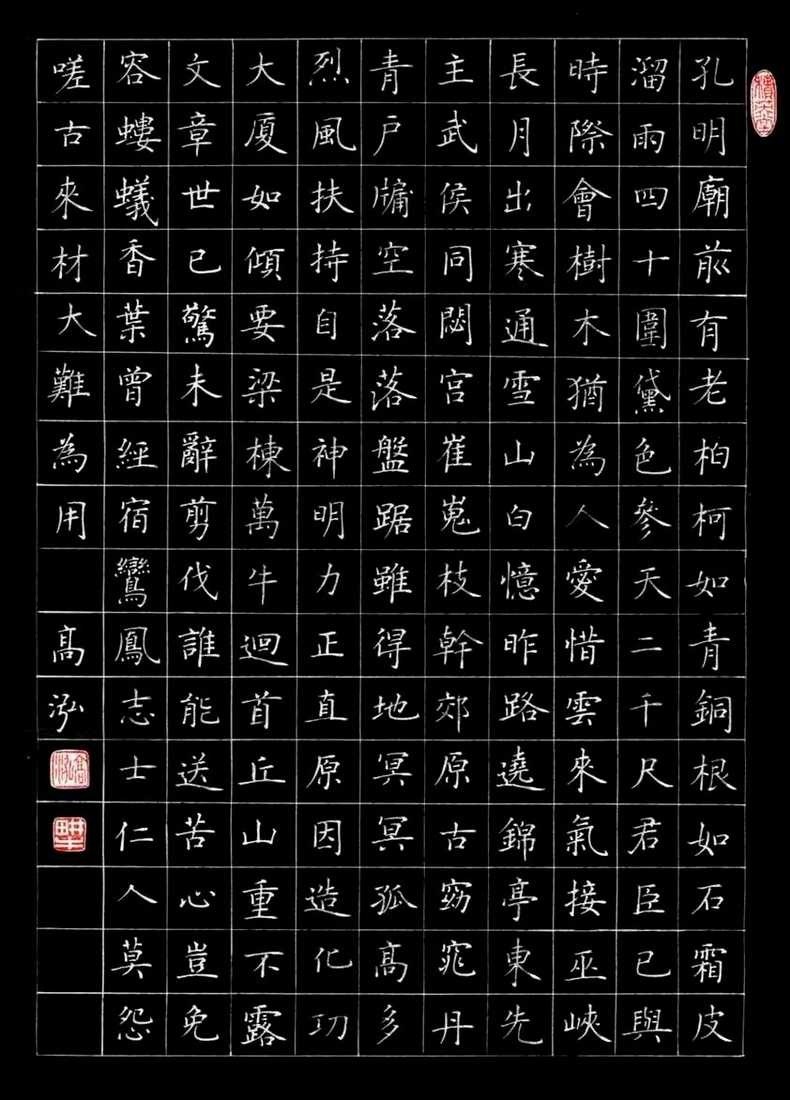 孔明廟前有老柏柯如青銅根如石霜皮
溜雨四十圍黛色參天二千尺君臣已與
時際會樹木猶為人愛惜雲來氣接巫峽
長月出寒通雪山白憶昨路遶錦亭東先
主武侯同閟宮崔嵬枝幹郊原古窈窕丹
青戶牖空落落盤踞雖得地冥冥孤高多
烈風扶持自是神明力正直原因造化功
大厦如傾要梁棟萬牛迴首丘山重不露
文章世已驚未辭剪伐誰能送苦心豈免
容螻蟻香葉曾經宿鸞鳳志士仁人莫怨
嗟古來材大難為用 高泓